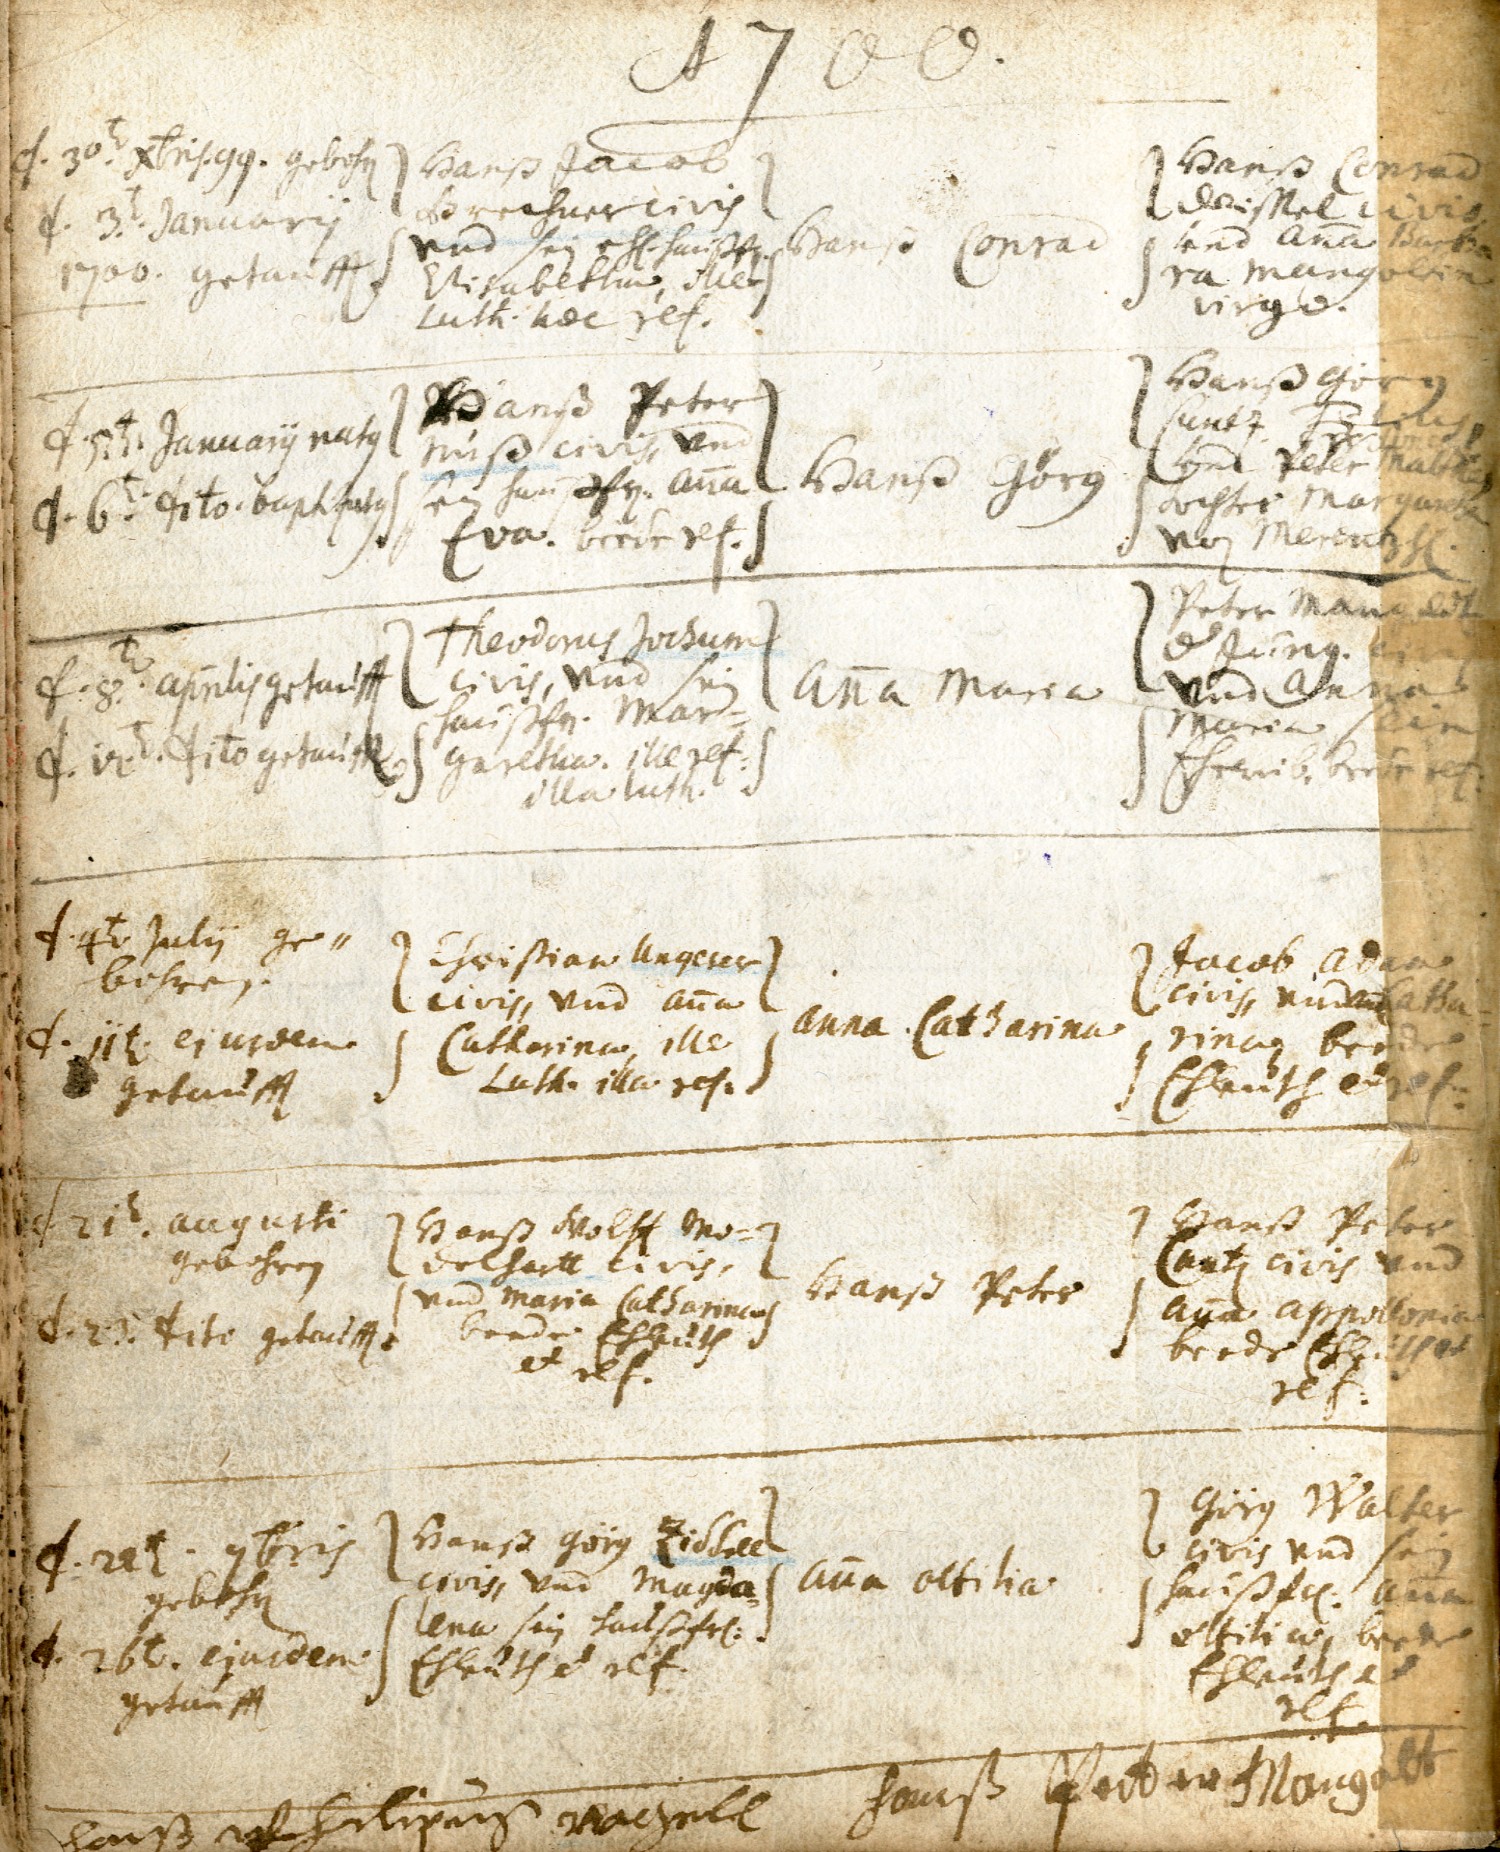 1700.
d. 30t. Xbris. 99. gebohrn
d. 3t. Januarij
1700. getaufft.
Hanß Jacob
civis
und sein ehl. haußfr.
Elisabetha, ille
Luth. haec ref.
Hanß Conrad
Hanß Conrad
civis
und Aña Barba
ra Mangoldin
virgo.
d. 5t. Januarij natus
d. 6t. dito. baptizatus
Hanß Peter
Nuß civis, und
sein haußfr. Aña
Eva. beede ref.
Hanß Görg
Hanß Görg
Cuntz
und Peter
dochter Margareth
von
d. 8t. aprilis getaufft
d. 12t. dito getaufft
Theodorus Jochum
civis, und sein
haußfr. Mar=
garetha. ille ref.
illa luth.
Aña Maria
Peter Mangoldt
d. Jüng. civis
und Anna
Maria sein
Eheweib. beede ref.
d. 4t. Julij ge"
bohren.
d. 11t. ejusdem
getaufft
Christian Ungerer
civis, und Aña
Catharina, ille
Luth. illa ref.
Anna Catharina
Jacob Adam
civis, und Aña Catha
rina, beede
Ehleuth et ref.
d. 21t. augusti
gebohren
d. 23. dito getaufft.
Hanß Wolff Mo=
delhartt civis,
und Maria Catharina
beede Ehleuth
et ref.
Hanß Peter
Hanß Peter
Cuntz civis und
Aña Appollonia
beede Ehleuth et
ref.
d. 22t. 7bris
gebohrn
d. 26t. ejusdem
getaufft
Hanß Görg
civis, und Magda=
lena sein haußfr.
Ehleuth et ref.
Aña Ottilia
Görg Walter
civis und sein
haußfr. Aña
Ottilia, beede
Ehleuth et
ref.
Hanß Philipus
Hanß Petter Mangoldt